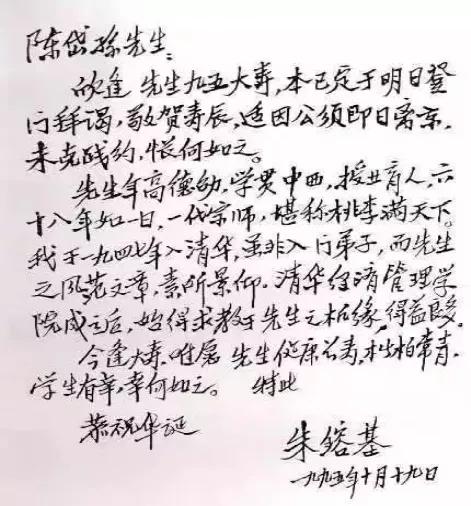 陈岱孙先生:
欣逢 先生九五大寿,本已定于明日登
门拜谒,敬贺寿辰,适因公须即日离京,
未克践约,怅何如之。
先生年高德劭,学贯中西,授业育人,六
十八年如一日,一代宗师,堪称桃李满天下。
我于一九四七年入清华,虽非入门弟子,而先生
之风范文章,素所景仰。清华经济管理学
院成立后,始得求教于先生之机缘,得益良多。
今逢大寿,唯愿 先生健康公寿,松柏常青,
学生有幸,幸何如之。 特此
恭祝华诞
朱镕基
一九九五年十月十九日